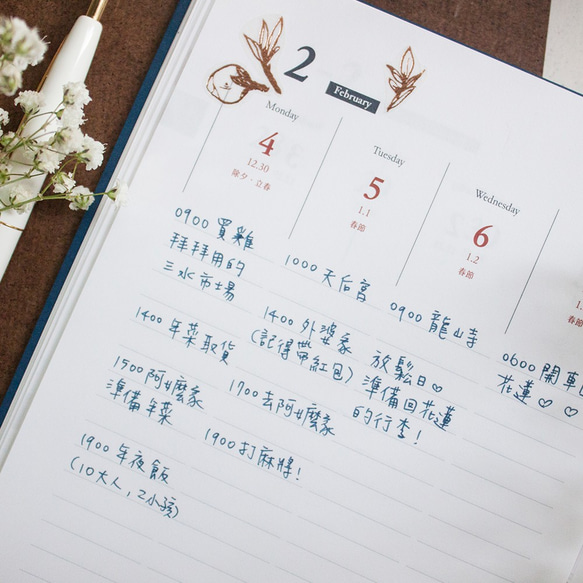 2
February
Monday
4
12.30
除夕·立春
0900 買雞
拜拜用的
三水市場
1400 年菜取貨
1500 阿嬤家
準備年菜
1900 年夜飯
(10大人,2小孩)
Tuesday
5
1.1
春節
1000 天后宮
1400 外婆家
(記得帶紅包)
1700 去阿嬤家
1900 打麻將!
Wednesday
6
1.2
春節
0900 龍山寺
放鬆日♡
準備回花蓮
的行李!
0600 開車
花蓮♡♡